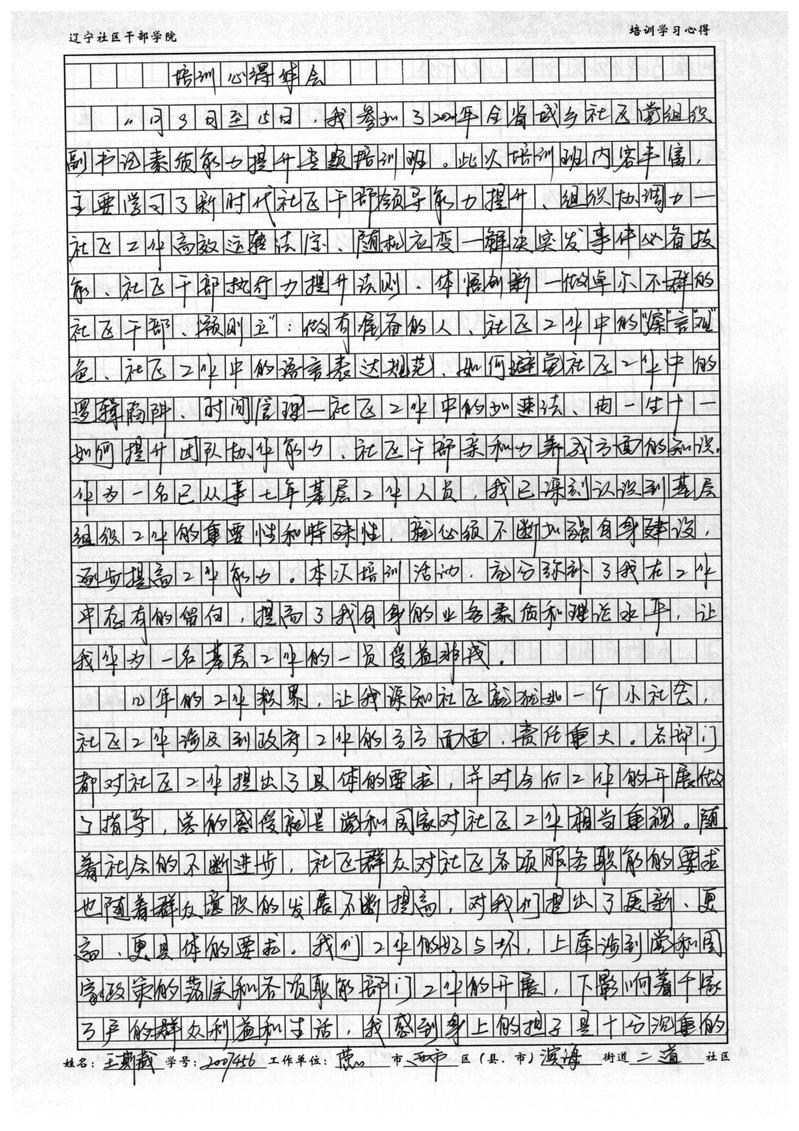 辽宁社区干部学院 培训学习心得
培训心得体会
月9日至15日,我参加了2020年全省城乡社区党组织
副书记素质能力提升专题培训班。此次培训班内容丰富,
主要学习了新时代社区干部领导能力提升、组织协调力一
社区工作高效运转法宝、随机应变一解决突发事件必备技
能、社区干部执行力提升法则、体悟创新一做卓尔不群的
社区干部、"预则立":做有准备的人、社区工作中的"察"言"观"
色、社区工作中的语言表达规范、如何避免社区工作中的
逻辑陷阱、时间管理一社区工作中的加速法、由一生十一
如何提升团队协作能力、社区干部亲和力养成方面的知识。
作为一名已从事七年基层工作人员,我已深刻认识到基层
组织工作的重要性和特殊性,就必须不断加强自身建设,
逐步提高工作能力。本次培训活动,充分弥补了我在工作
中存有的留白,提高了我自身的业务素质和理论水平,让
我作为一名基层工作的一员受益非浅。
年的工作积累,让我深知社区就犹如一个小社会,
社区工作涉及到政府工作的方方面面,责任重大。各部门
都对社区工作提出了具体的要求,并对今后工作的开展做
了指导,总的感受就是党和国家对社区工作相当重视。随
着社会的不断进步,社区群众对社区各项服务职能的要求
也随着群众意识的发展不断提高,对我们提出了更新、更
高、更具体的要求。我们工作的好与坏,上牵涉到党和国
家政策的落实和各项职能部门工作的开展,下影响着千家
万户的群众利益和生活,我感到身上的担子是十分沉重的
姓名: 王 学号:2007456 工作单位: 市 区(县、市)滨海 街道 二道 社区